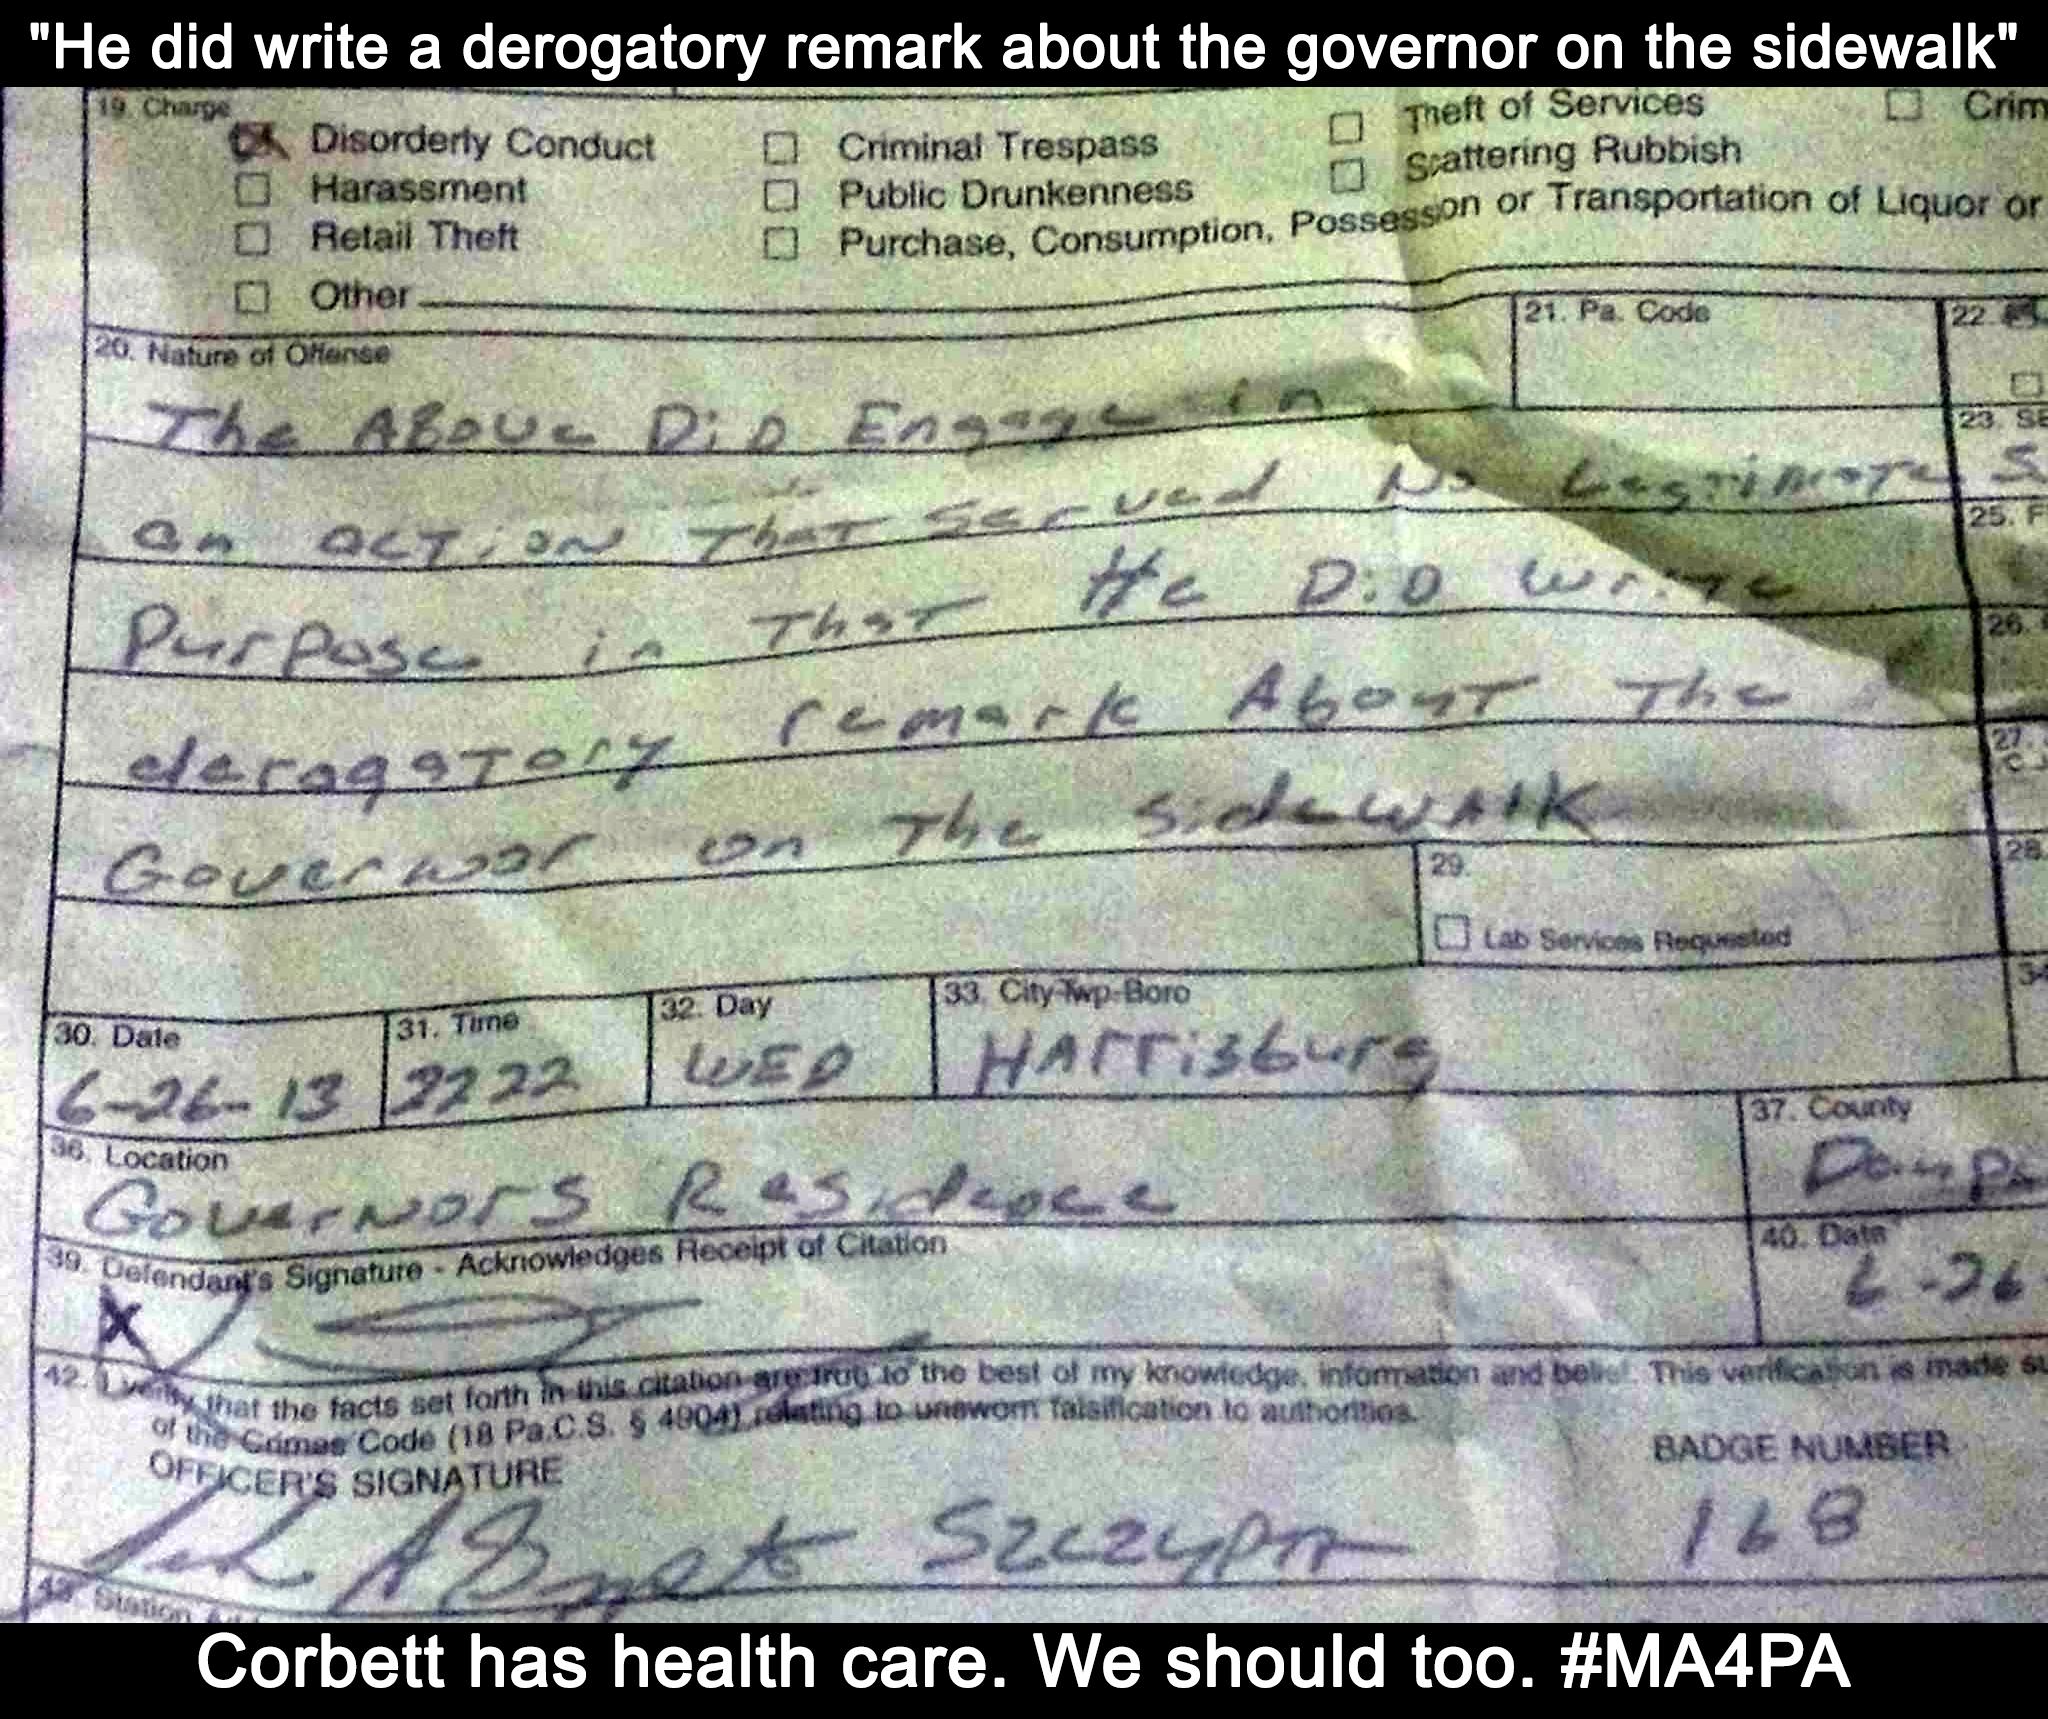 "He did write a derogatory remark about the governor on the sidewalk"
19. Charge
Disorderly Conduct
Criminal Trespass
Theft of Services
Crim
Harassment
Public Drunkenness
Scattering Rubbish
Retail Theft
Purchase, Consumption, Possession or Transportation of Liquor or
Other
20. Nature of Offense
21. Pa. Code
22.
The Above Did Engage in
23. SE
an action That served No Legitimate
25. F
Purpose in That He Did write
26.
derogatory remark About The
27.
Governor on The sidewalk
28.
29.
Lab Services Requested
30. Date
31. Time
32. Day
33. City-Twp-Boro
34
6-26-13
2222
WED
Harrisburg
36. Location
37. County
Governors Residence
Daup
39. Defendant's Signature - Acknowledges Receipt of Citation
40. Date
X
6-26
42. I verify that the facts set forth in this citation are true to the best of my knowledge, information and belief. This verification is made su
of the Crimes Code (18 Pa.C.S. § 4904) relating to unsworn falsification to authorities.
OFFICER'S SIGNATURE
BADGE NUMBER
Szczypta
168
43. Station
Corbett has health care. We should too. #MA4PA